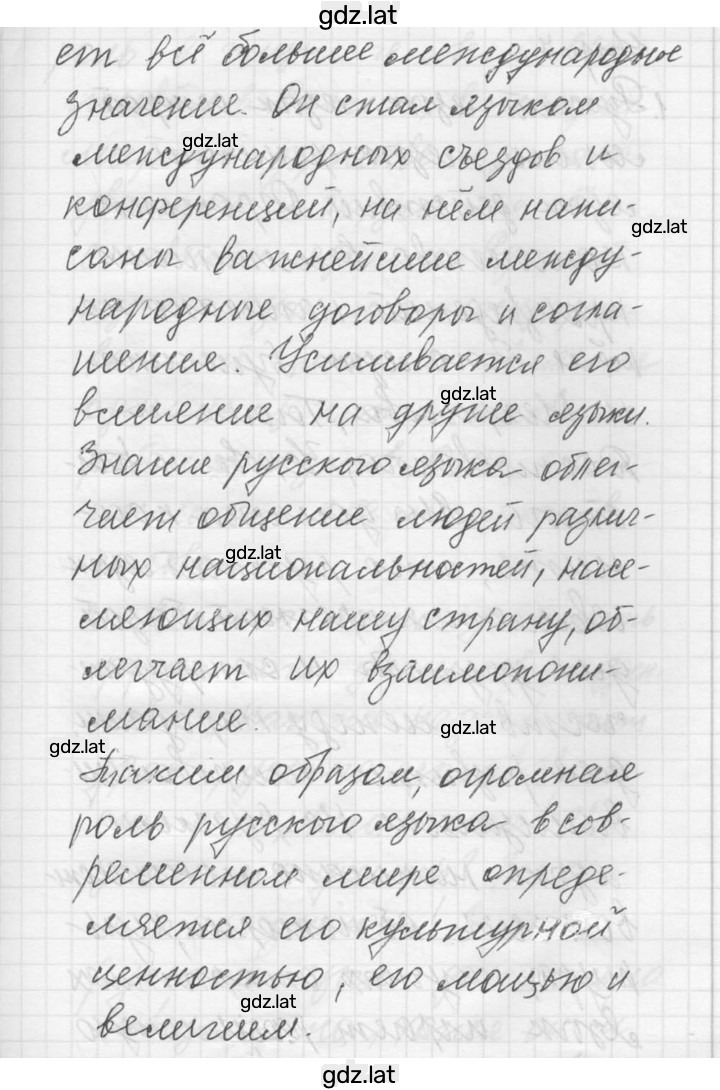 gdz.lat
ет всё большее международные
значение. Он стал языком
gdz.lat
международных съездов и
конференций, на нём напи-
gdz.lat
саны важнейшие между-
народные договоры и согла-
шения. Усиливается его
gdz.lat
влияние на другие языки.
Знание русского языка облег-
чает общение людей различ-
gdz.lat
ных национальностей, насе-
ляющих нашу страну, об-
легчает их взаимопони-
мание.
gdz.lat
gdz.lat
Таким образом, огромная
роль русского языка в сов-
ременном мире опреде-
ляется его культурной
ценностью, его мощью и
gdz.lat
величием.
gdz.lat